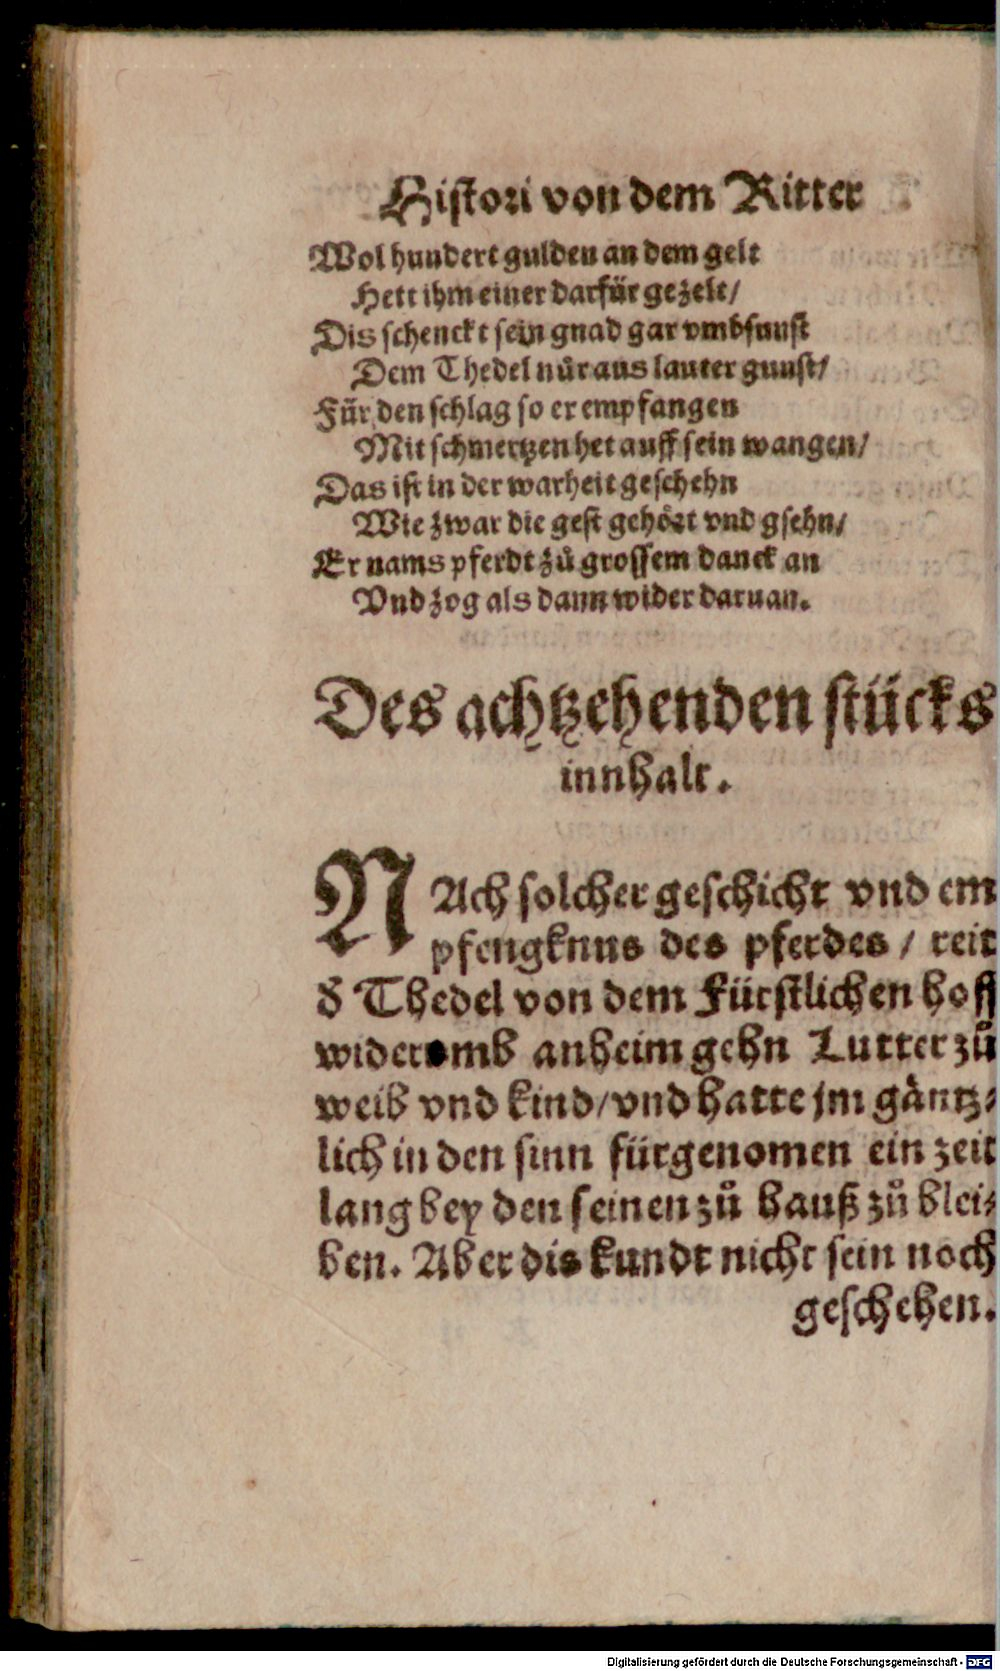 Histori von dem Ritter
Wol hundert gulden an dem gelt
Hett ihm einer darfür gezelt/
Dis schenckt sein gnad gar vmbsunst
Dem Thedel nůr aus lauter gunst/
Für den schlag so er empfangen
Mit schmertzen het auff sein wangen/
Das ist in der warheit geschehn
Wie zwar die gest gehört vnd gsehn/
Er nams pferdt zů grossem danck an
Vnd zog als dann wider daruan.
Des achtzehenden stücks
innhalt.
NAch solcher geschicht vnd em
pfengknus des pferdes / reit
d Thedel von dem Fürstlichen hoff
widerumb anheim gehn Lutter zů
weib vnd kind/vnd hatte jm gäntz⸗
lich in den sinn fürgenomen ein zeit
lang bey den seinen zů hauß zů blei⸗
ben. Aber dis kundt nicht sein noch
geschehen.
Digitalisierung gefördert durch die Deutsche Forschungsgemeinschaft - DFG